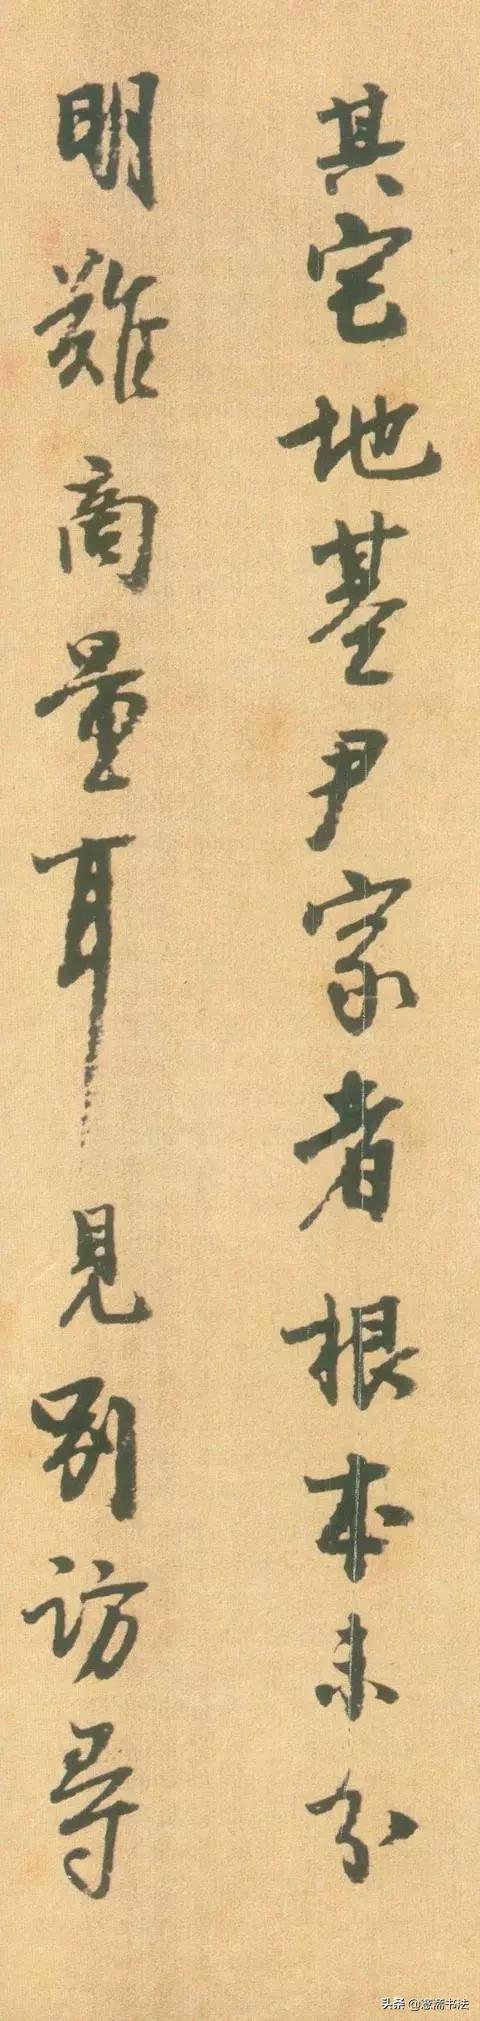 其宅地基尹家者根本未分
明難商量耳見別訪尋
头条 @意斋书法